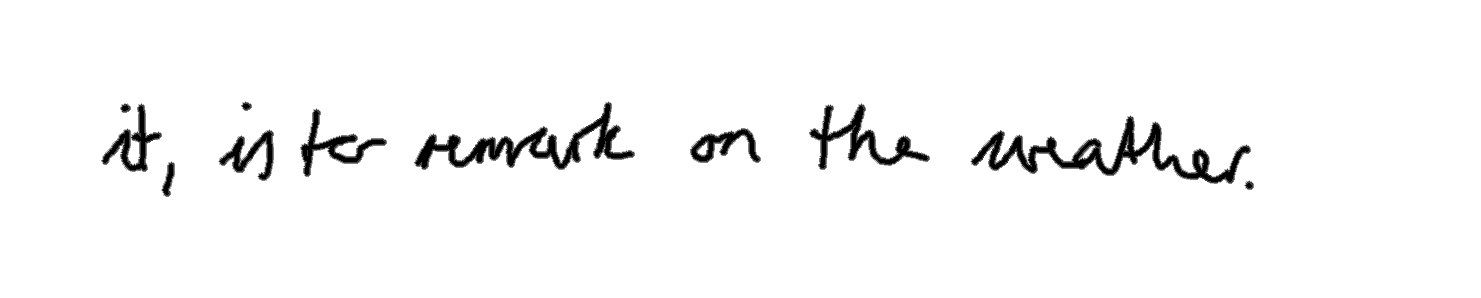 it, is to remark on the weather.